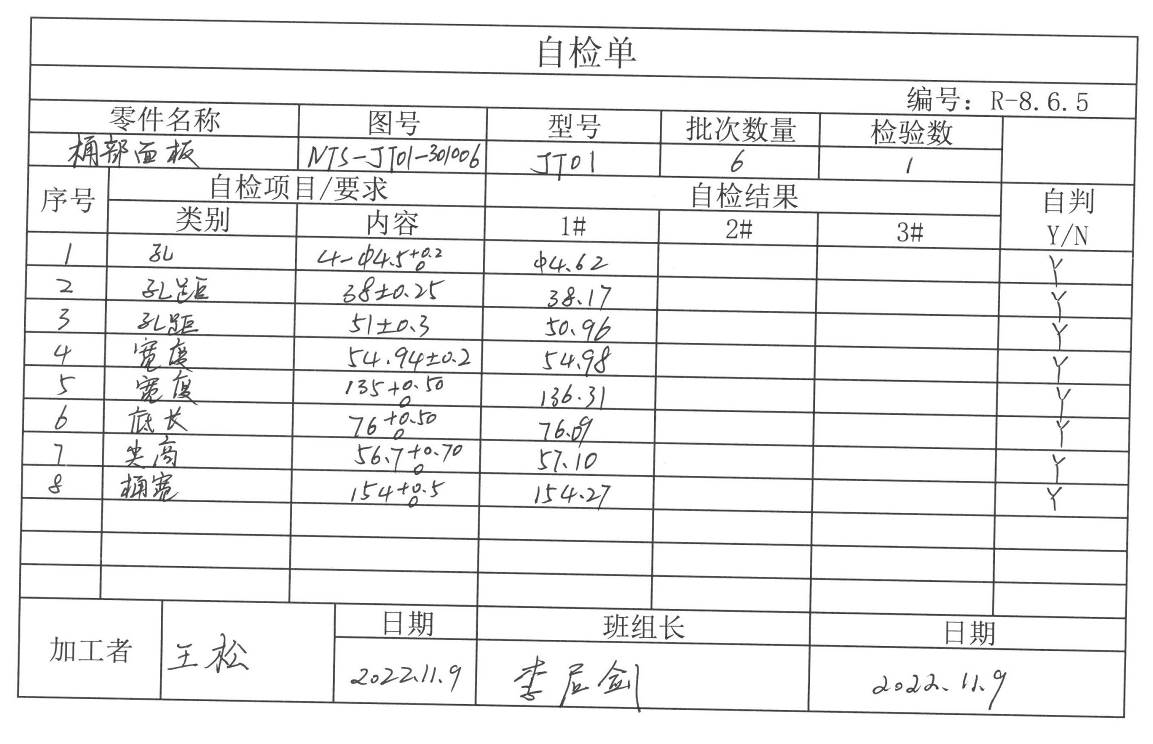 自检单
编号: R-8.6.5
零件名称 图号 型号 批次数量 检验数
桶部面板 NTS-JT01-301006 JT01 6 1
序号 自检项目/要求 自检结果 自判
类别 内容 1# 2# 3# Y/N
1 孔 4-Φ4.5+0.2 0 Φ4.62 Y
2 孔距 38±0.25 38.17 Y
3 孔距 51±0.3 50.96 Y
4 宽度 54.94±0.2 54.98 Y
5 宽度 135+0.50 0 136.31 Y
6 底长 76+0.50 0 76.09 Y
7 尖高 56.7+0.70 0 57.10 Y
8 桶宽 154+0.5 0 154.27 Y
加工者 王松 日期 班组长 日期
2022.11.9 李 剑 2022.11.9